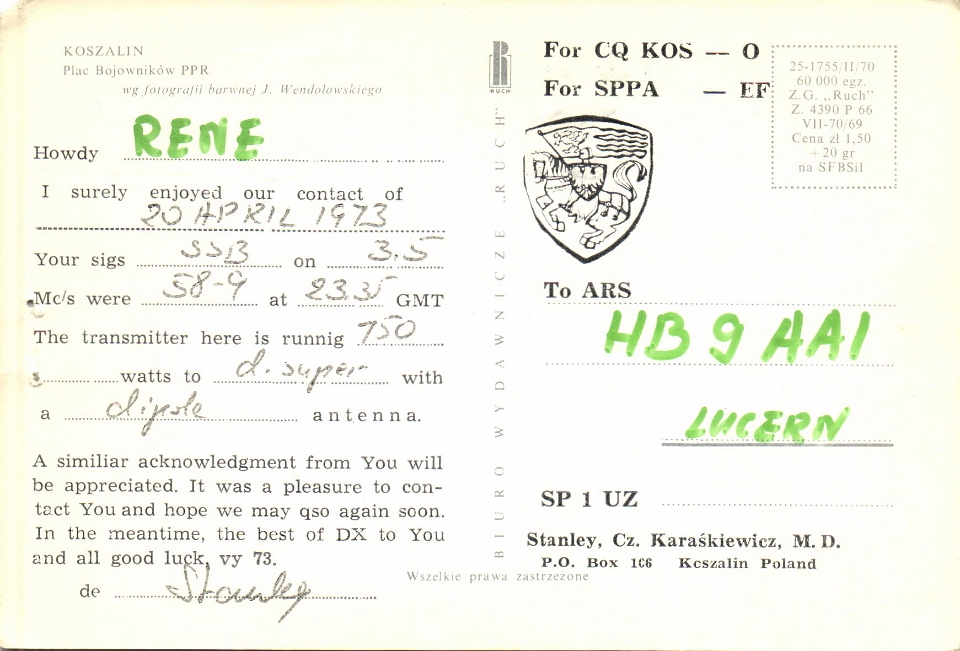 KOSZALIN
Plac Bojowników PPR
wg fotografii barwnej J. Wendołowskiego
Howdy RENE
I surely enjoyed our contact of
20 APRIL 1973
Your sigs SSB on 3.5
Mc/s were 58-9 at 23.35 GMT
The transmitter here is runnig 750
watts to d. super with
a dipole antenna.
A similiar acknowledgment from You will
be appreciated. It was a pleasure to con-
tact You and hope we may qso again soon.
In the meantime, the best of DX to You
and all good luck, vy 73.
de Stanley
RUCH
BIURO WYDAWNICZE „RUCH"
Wszelkie prawa zastrzeżone
For CQ KOS — O
For SPPA — EF
25-1755/II/70
60 000 egz.
Z.G. „Ruch"
Z. 4390 P 66
VII-70/69
Cena zł 1,50
+ 20 gr
na SFBSiI
To ARS
HB 9 AAI
LUCERN
SP 1 UZ
Stanley, Cz. Karaśkiewicz, M. D.
P.O. Box 106 Koszalin Poland